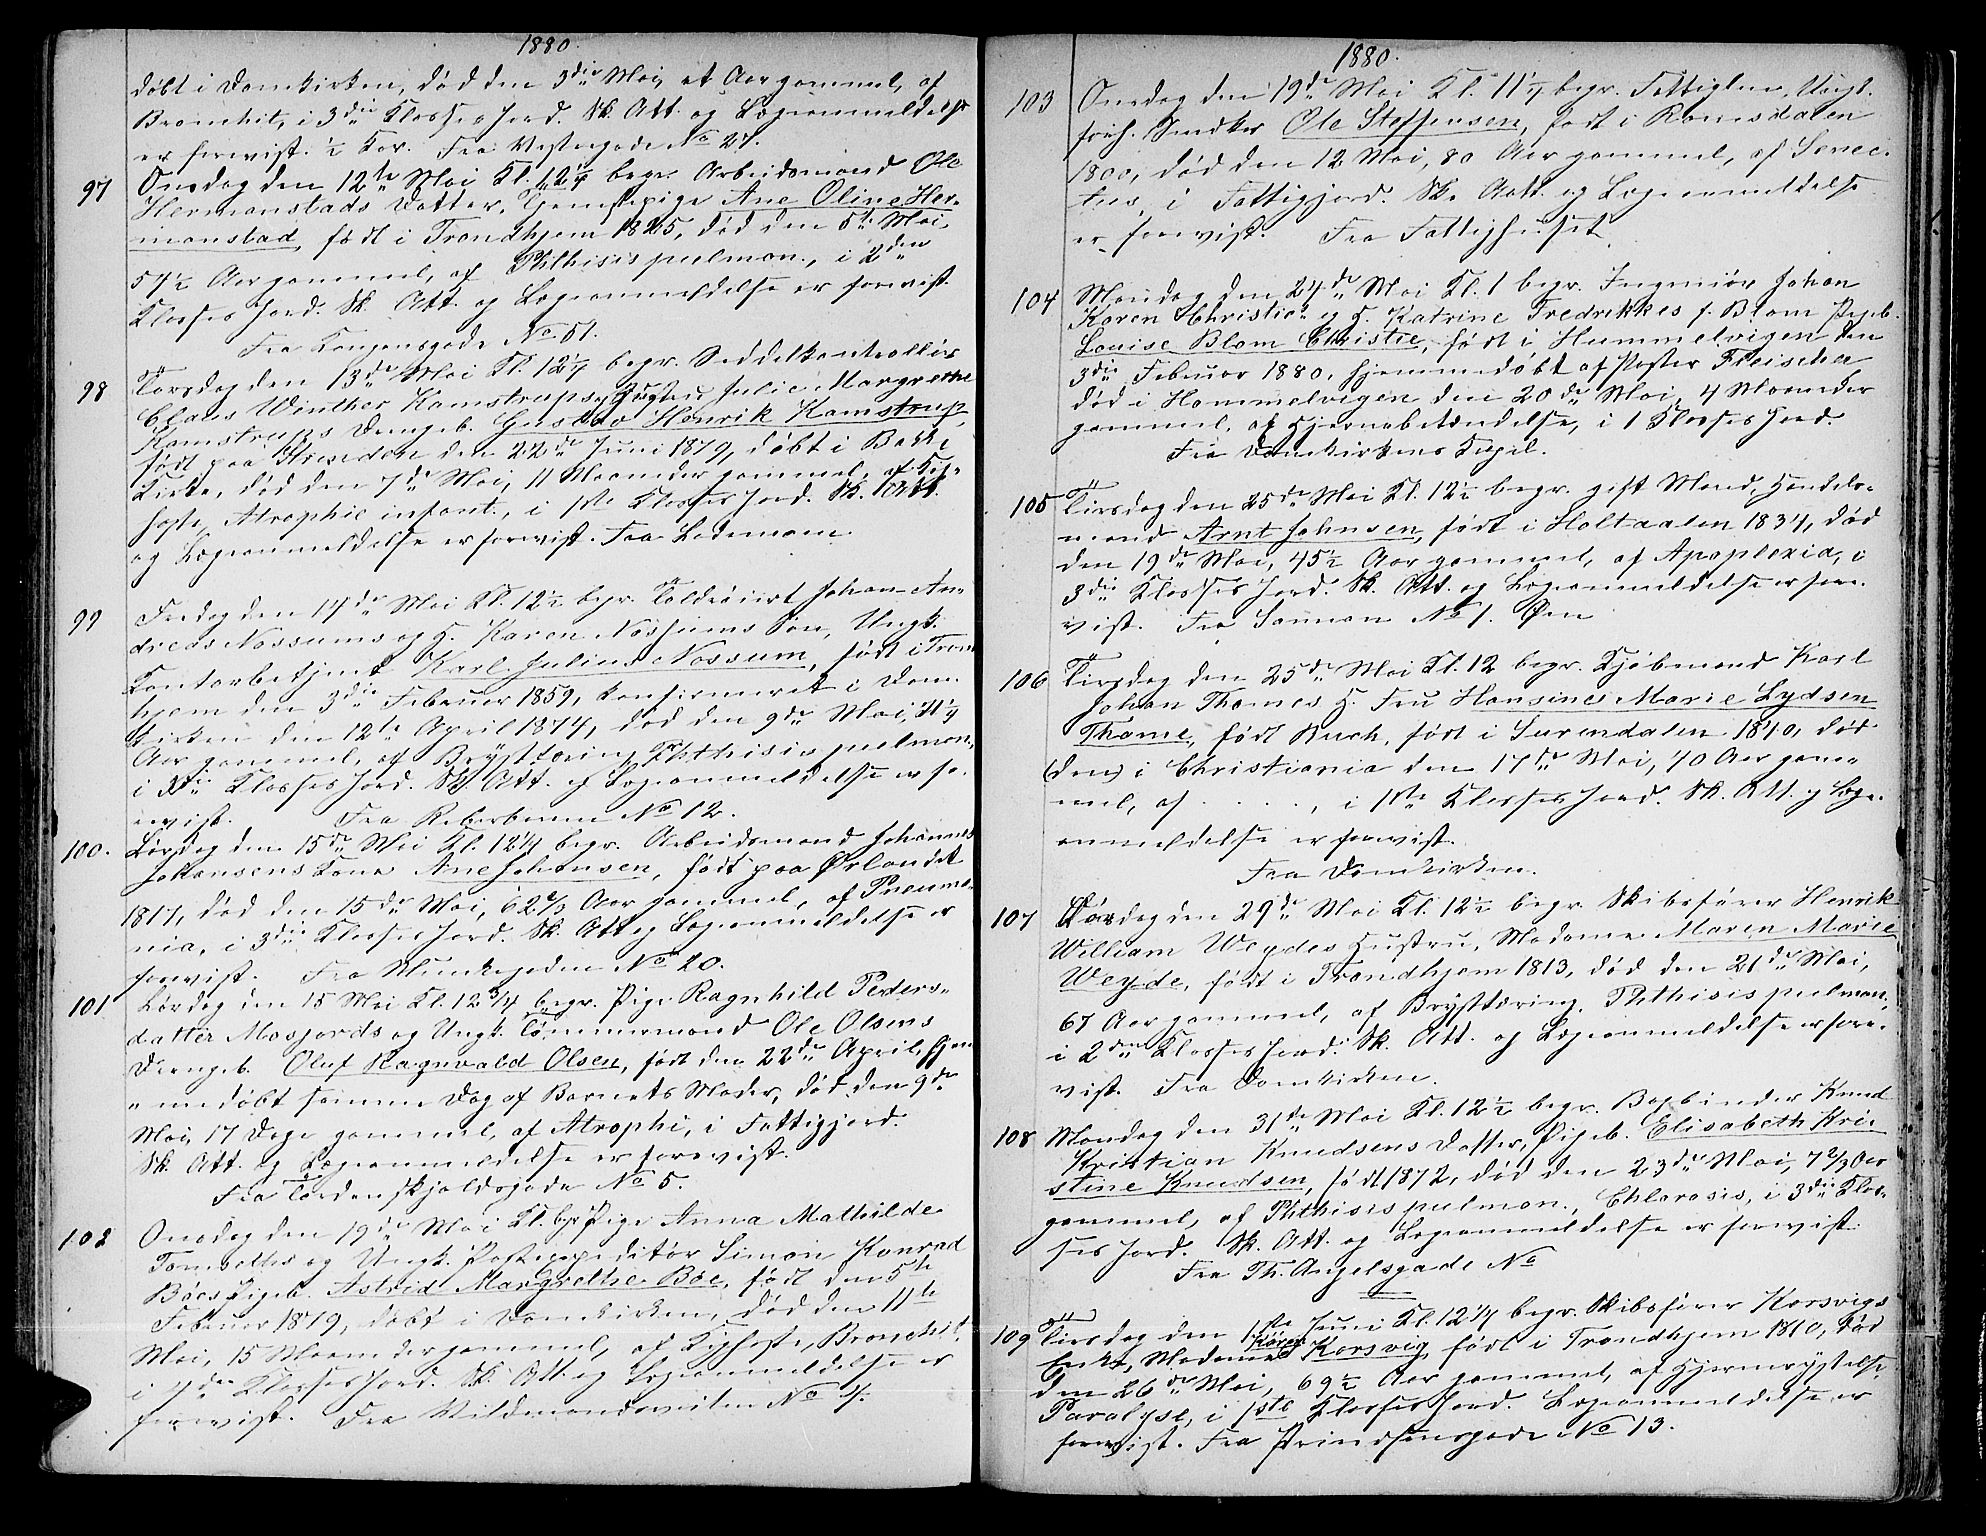 1880.
døbt i Domkirken, død den 3die Mai, et Aar gammel, af
Bronchit, i 3die Klasses Jord. Sk. Att. og Lægeanmeldelse
er forevist. ½ Kor. Fra Vestergade No 27.
97 Onsdag den 12te Mai Kl. 12¼ begr. Arbeidsmand Ole
Hermanstads Datter, Tjenestepige Ane Oline Her-
manstad, født i Trondhjem 1825, død den 5te Mai,
54½ Aar gammel, af Phthisis pulmon., i 2den
Klasses Jord. Sk. Att. og Lægeanmeldelse er forevist.
Fra Kongensgade No 51.
98 Torsdag den 13de Mai Kl. 12¼ begr. Seddelkontrollør
Claus Winther Kamstrups og Hustru Julie Margrethe
Kamstrups Drengeb. Gustav Henrik Kamstrup,
født paa Strinden den 22de Juni 1879, døbt i Bakke
Kirke, død den 7de Mai, 11 Maaneder gammel, af Kig-
hoste, Atrophie infant., i 1ste Klasses Jord. Sk. Att.
og Lægeanmeldelse er forevist. Fra Lademoen.
99 Fredag den 14de Mai Kl. 12½ begr. Toldrøiert Johan An-
dreas Nossums og H. Karen Nossums Søn, Ungk.
Kontorbetjent Karl Julius Nossum, født i Tron-
hjem den 3die Februar 1859, konfirmeret i Dom-
kirken den 12te April 1874, død den 9de Mai, 21¼
Aar gammel, af Brysttæring, Phthisis pulmon.,
i 3die Klasses Jord. Sk. Att. og Lægeanmeldelse er fo-
revist. Fra Reberbanen No 12.
100. Lørdag den 15de Mai Kl. 12¼ begr. Arbeidsmand Johannes
Johansens Kone Ane Johansen, født paa Ørlandet
1817, død den 15de Mai, 62⅔ Aar gammel, af Pneumo-
nia, i 3die Klasses Jord. Sk. Att og Lægeanmeldelse er
forevist. Fra Munkegaden No 20.
101 Lørdag den 15 Mai Kl. 12¾ begr. Pige Ragnhild Peders-
datter Mosjords og Ungk. Tømmermand Ole Olsens
Drengeb. Oluf Ragnvald Olsen, født den 22de April, hjem-
medøbt samme Dag af Barnets Moder, død den 9de
Mai, 17 Dage gammel, af Atrophi, i Fattigjord.
Sk. Att. og Lægeanmeldelse er forevist.
Fra Tordenskjoldsgade No 5.
102 Onsdag den 19de Mai Kl. begr. Pige Anna Mathilde
og Ungk. Postexpeditør Simon Konrad
Bøes Pigeb. Astrid Margrethe Bøe, født den 5te
Februar 1879, døbt i Domkirken, død den 11te
Mai, 15 Maaneder gammel, af Kighoste, Bronchit,
i Klasses Jord. Sk. Att. og Lægeanmeldelse er
forevist. Fra Vildmandsveiten No 4.
1880.
103 Onsdag den 19de Mai Kl. 11½ begr. Fattiglem, Ungk.
forh. Snedker Ole Steffensen, født i Romsdalen
1800, død den 12 Mai, 80 Aar gammel, af Senec-
tus, i Fattigjord. Sk. Att. og Lægeanmeldelse
er forevist. Fra Fattighuset.
104 Mandag den 24de Mai Kl. 1 begr. Ingeniør Johan
Koren Christies og H. Katrine Fredrikkes f. Blom Pigeb.
Louise Blom Christie, født i Hummelvigen den
3die Februar 1880, hjemmedøbt af Pastor Fleischer
død i Hommelvigen den 20de Mai, 4 Maaneder
gammel, af Hjernebetændelse, i 1 Klasses Jord.
Fra Domkirkens Kapel.
105 Tirsdag den 25de Mai Kl. 12½ begr. gift Mand, Handels-
mand Arnt Johnsen, født i Holtaalen 1834, død
den 19de Mai, 45½ Aar gammel, af Apoplexia, i
3die Klasses Jord. Sk. Att. og Lægeanmeldelse er fore-
vist. Fra Sannan No 1. Øen
106 Tirsdag den 25de Mai Kl. 12 begr. Kjøbmand Karl
Johan Thomes H. Fru Hansine Marie Lydsen
Thome, født Kuch, født i Surendalen 1840, død
(den) i Christiania den 17de Mai, 40 Aar gam-
mel, af . . . . , i 1ste Klasses Jord. Sk. Att. og Læge-
anmeldelse er forevist.
Fra Domkirken.
107 Lørdag den 29de Mai Kl. 12½ begr. Skibsfører Henrik
William Weydes Hustru, Madame Maren Marie
Weyde, født i Trondhjem 1813, død den 21de Mai,
67 Aar gammel, af Brysttæring, Phthisis pulmon.,
i 2den Klasses Jord. Sk. Att. og Lægeanmeldelse er fore-
vist. Fra Domkirken.
108 Mandag den 31de Mai Kl. 12½ begr. Bogbinder Knud
Kristian Knudsens Datter, Pigeb. Elisabeth Kri-
stine Knudsen, født 1872, død den 23de Mai, 7⅔ Aar
gammel, af Phthisis pulmon., Chlorosis, i 3die Klas-
ses Jord. Sk. Att. og Lægeanmeldelse er forevist.
Fra Th. Angelsgade No
109 Tirsdag den 1ste Juni Kl. 12¼ begr. Skibsfører Korsvigs
Enke, Madame Korsvig født i Trondhjem 1810, død
den 26de Mai, 69½ Aar gammel, af Hjernerystelse,
Paralyse, i 1ste Klasses Jord. Lægeanmeldelse er
forevist. Fra Prindsensgade No 13.